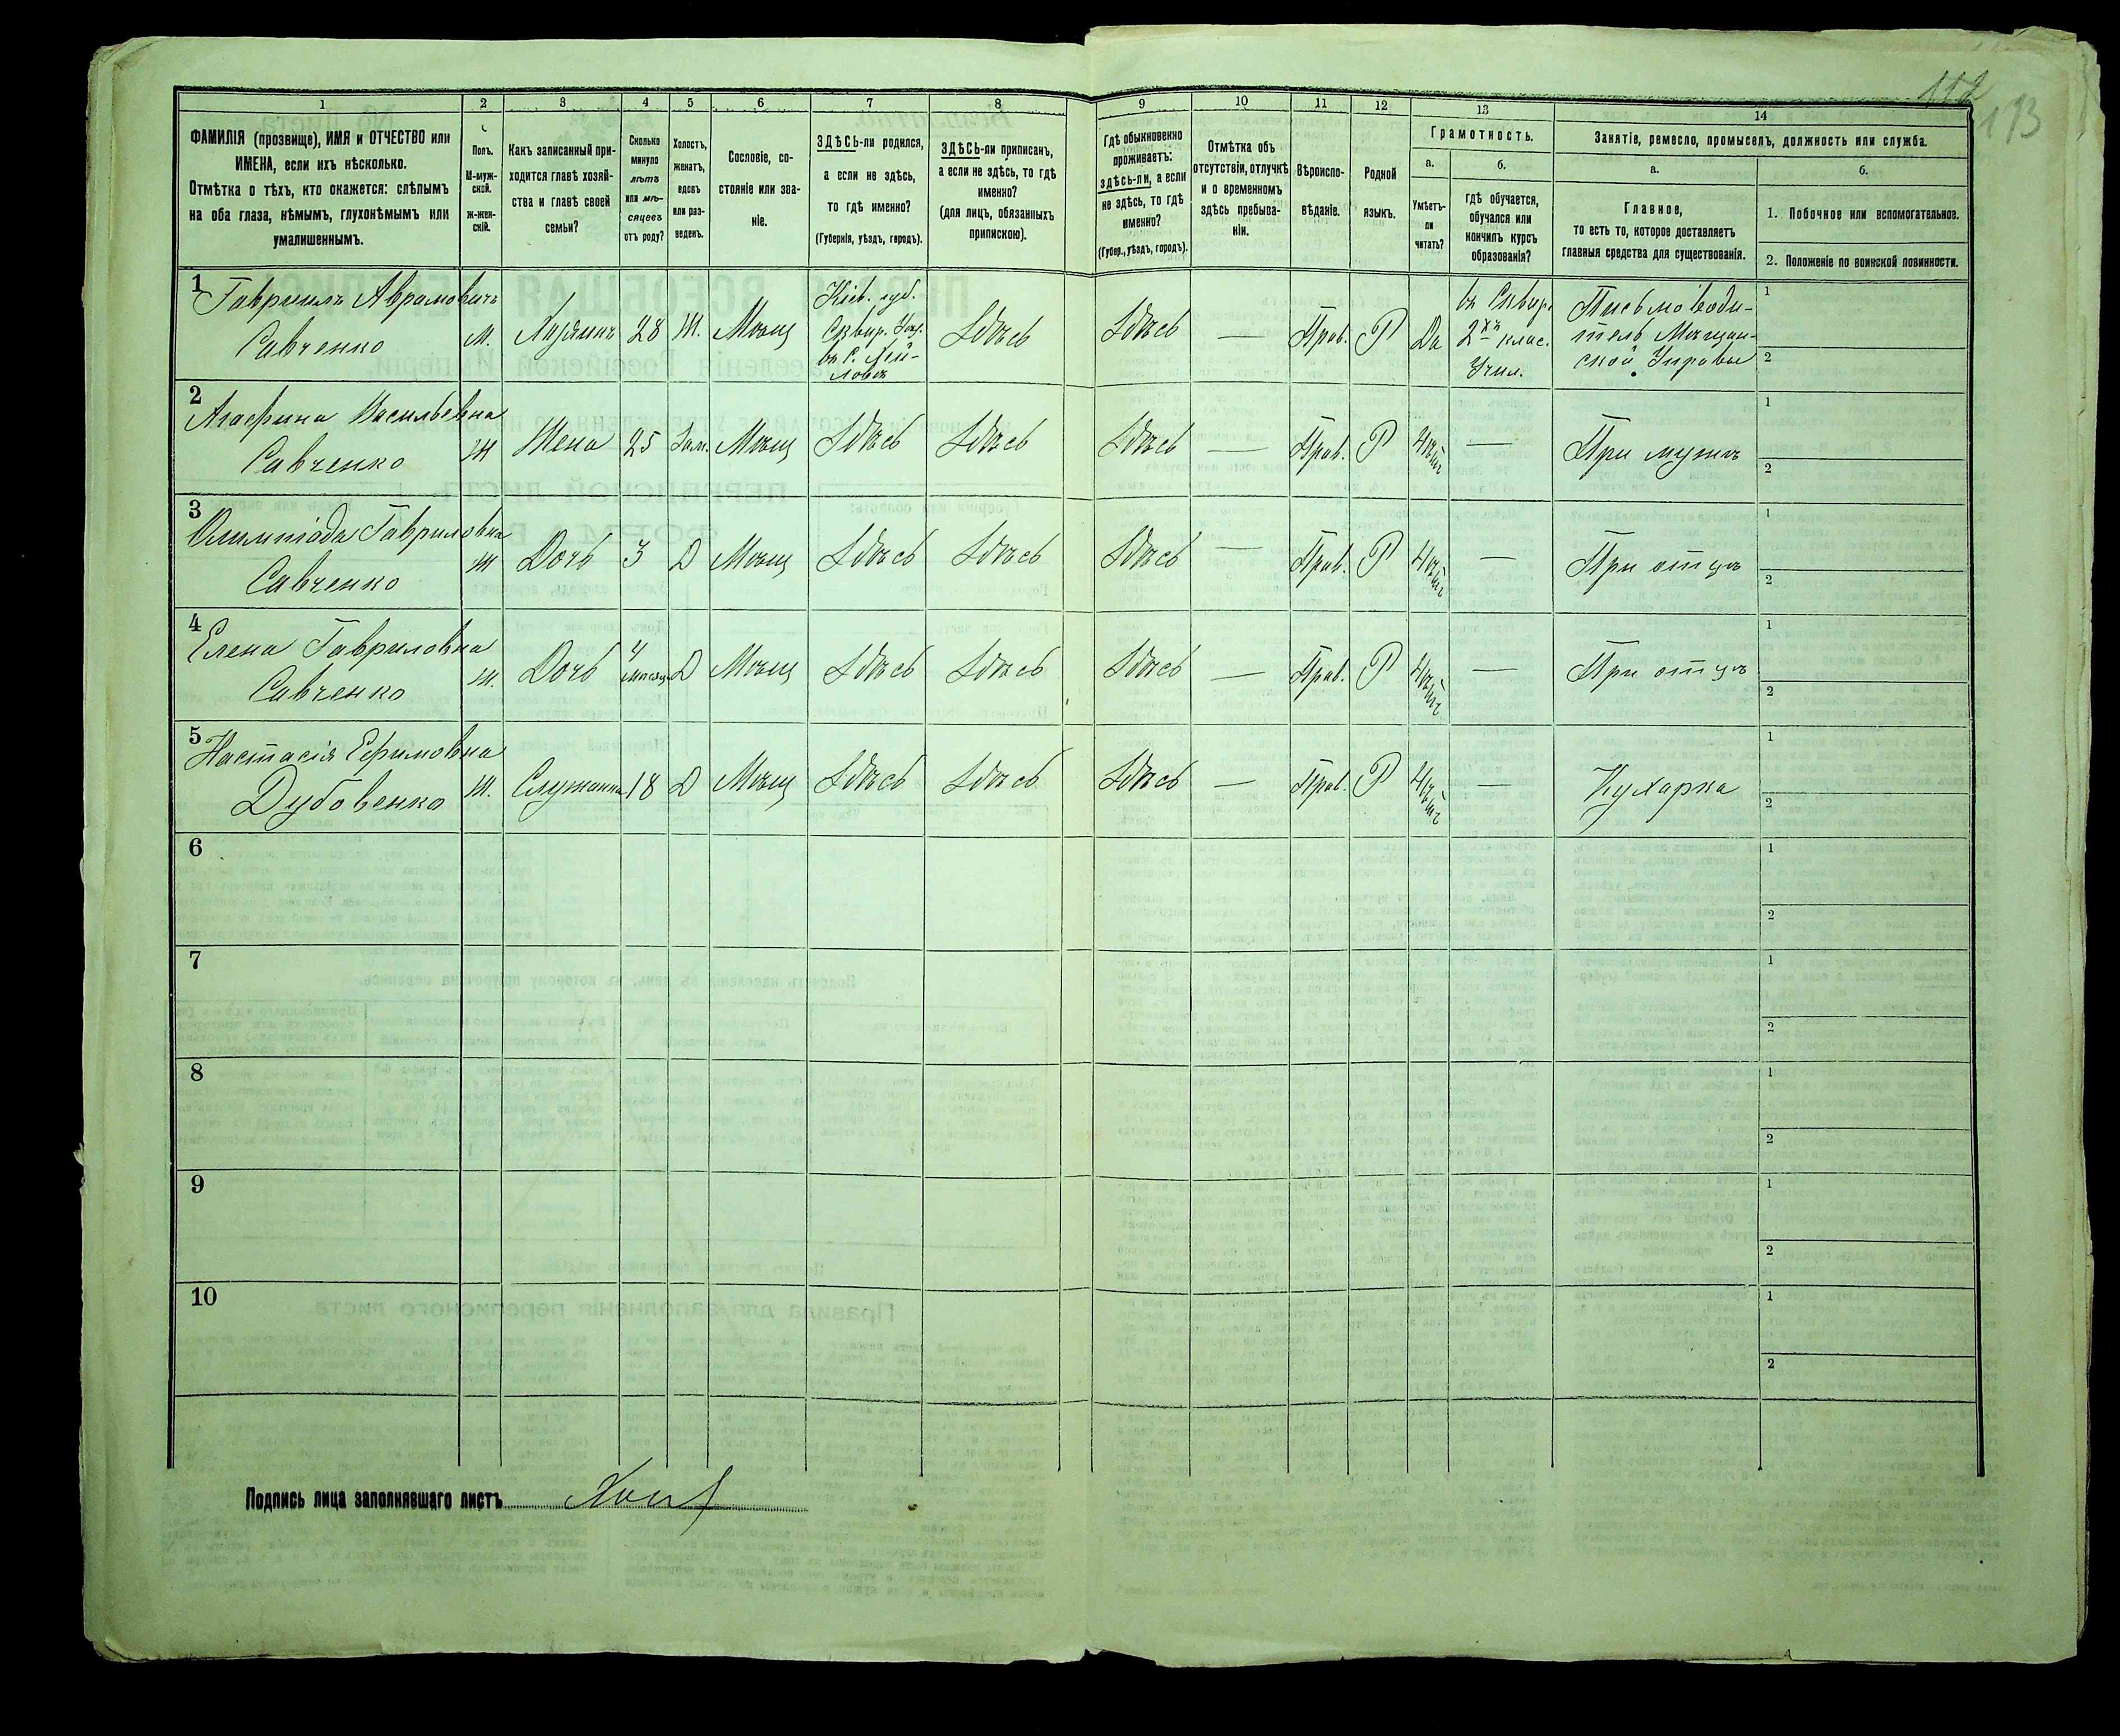 112
193
1
2
3
4
5
6
7
8
9
10
11
12
13
14
ФАМИЛІЯ (прозвище), ИМЯ и ОТЧЕСТВО или
ИМЕНА, если ихъ нѣсколько.
Отмѣтка о тѣхъ, кто окажется: слѣпымъ
на оба глаза, нѣмымъ, глухонѣмымъ или
умалишеннымъ.
Полъ.
М-муж-
ской.
Ж-жен-
скій.
Какъ записанный при-
ходится главѣ хозяй-
ства и главѣ своей
семьи?
Сколько
минуло
лѣтъ
или мѣ-
сяцевъ
отъ роду?
Холостъ,
женатъ,
вдовъ
или раз-
веденъ.
Сословіе, со-
стояніе или зва-
ніе.
ЗДѢСЬ-ли родился,
а если не здѣсь,
то гдѣ именно?
(Губернія, уѣздъ, городъ).
ЗДѢСЬ-ли приписанъ,
а если не здѣсь, то гдѣ
именно?
(для лицъ, обязанныхъ
припискою).
Гдѣ обыкновенно
проживаетъ:
здѣсь-ли, а если
не здѣсь, то гдѣ
именно?
(Губер., уѣздъ, городъ).
Отмѣтка объ
отсутствіи, отлучкѣ
и о временномъ
здѣсь пребыва-
ніи.
Вѣроиспо-
вѣданіе.
Родной
языкъ.
Грамотность.
а.
Умѣетъ-
ли
читать?
б.
гдѣ обучается,
обучался или
кончилъ курсъ
образованія?
Занятіе, ремесло, промыселъ, должность или служба.
а.
Главное,
то есть то, которое доставляетъ
главныя средства для существованія.
б.
1. Побочное или вспомогательное.
2. Положеніе по воинской повинности.
1
Гавриилъ Аврамовичъ
Савченко
М.
Хозяинъ
28
Ж.
Мѣщ
Кіев. губ.
Сквир. Уѣз.
въ С.
Здѣсь
Здѣсь
—
Прав.
Р
Да
въ Сквир.
2хъ клас.
Учил.
Письмоводи-
тель Мѣщан-
ской Управы
1
2
2
Агафина Васильевна
Савченко
Ж
Жена
25
Зам.
Мѣщ
Здѣсь
Здѣсь
Здѣсь
—
Прав.
Р
Нѣтъ
—
При мужѣ
1
2
3
Олимпіада Гавриловна
Савченко
Ж
Дочь
3
Д
Мѣщ
Здѣсь
Здѣсь
Здѣсь
—
Прав.
Р
Нѣтъ
—
При отцѣ
1
2
4
Елена Гавриловна
Савченко
Ж.
Дочь
4
мѣсяц
Д
Мѣщ
Здѣсь
Здѣсь
Здѣсь
—
Прав.
Р
Нѣтъ
—
При отцѣ
1
2
5
Настасія Ефимовна
Дубовенко
Ж.
Служанка
18
Д
Мѣщ
Здѣсь
Здѣсь
Здѣсь
—
Прав.
Р
Нѣтъ
—
Кухарка
1
2
6
1
2
7
1
2
8
1
2
9
1
2
10
1
2
Подпись лица заполнявшаго листъ